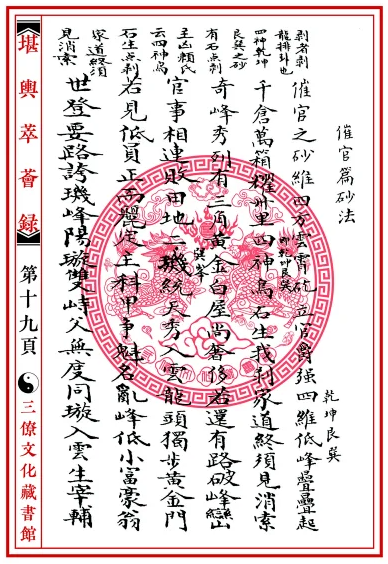 催官篇砂法
催官之砂維四方雲霄屹立官爵强四維低峰疊疊起
乾坤艮巽
即乾坤艮巽
千倉萬箱擢州里四神爲石生我刹家道終須見消索
奇峰秀列有三百黃金白屋尚奢侈若還有路破峰巒
官事相連敗田地二璣統天秀入雲龍頭獨步黃金門
巽峯
若見低員正高龍定主科甲爭魁名亂峰低小富豪翁
世登要路誇璣峰陽璇雙峙父無度同璇入雲生宰輔
剥者剥
龍排卦也
四神乾坤
艮巽之砂
有石点剥
主凶賴氏
云四神爲
石生点剥
家道終須
見消索
堪輿萃薈録
第十九頁
三僚文化藏書館